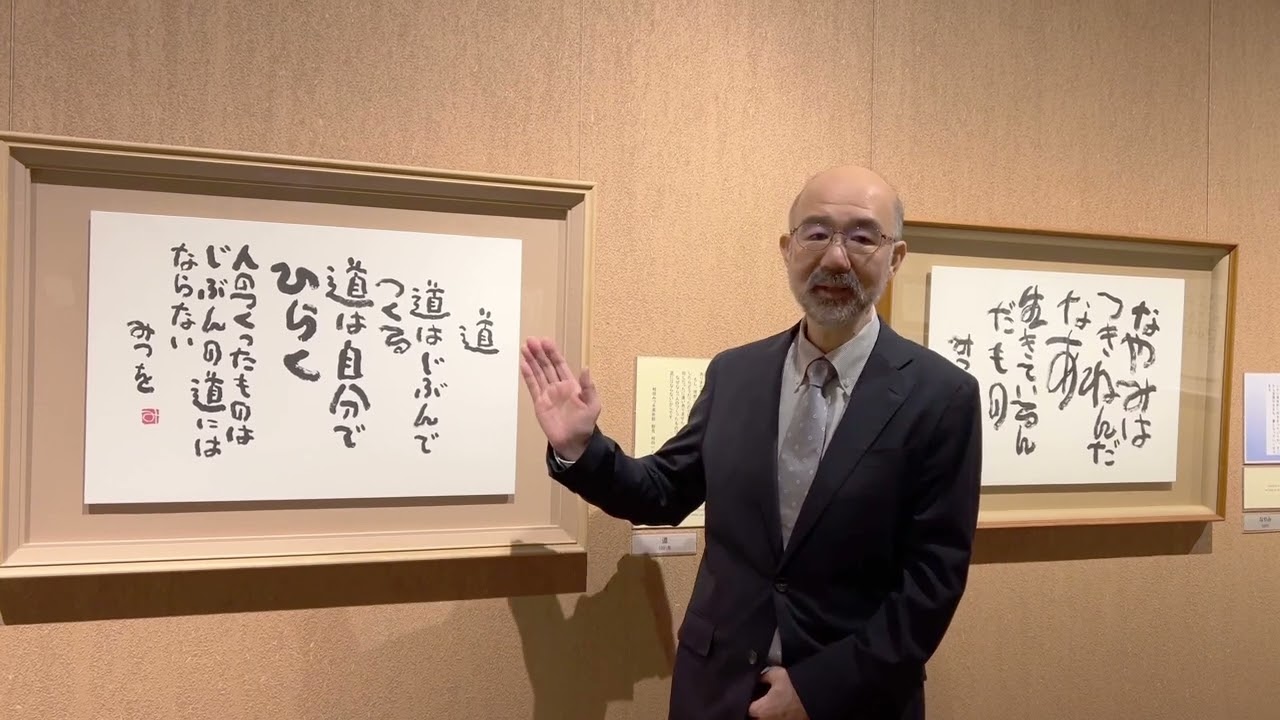 道
道はじぶんで
つくる
道は自分で
ひらく
人のつくったものは
じぶんの道には
ならない
みつを
道
なやみは
つきねんだ
なあ
生きているん
だもの
みつ